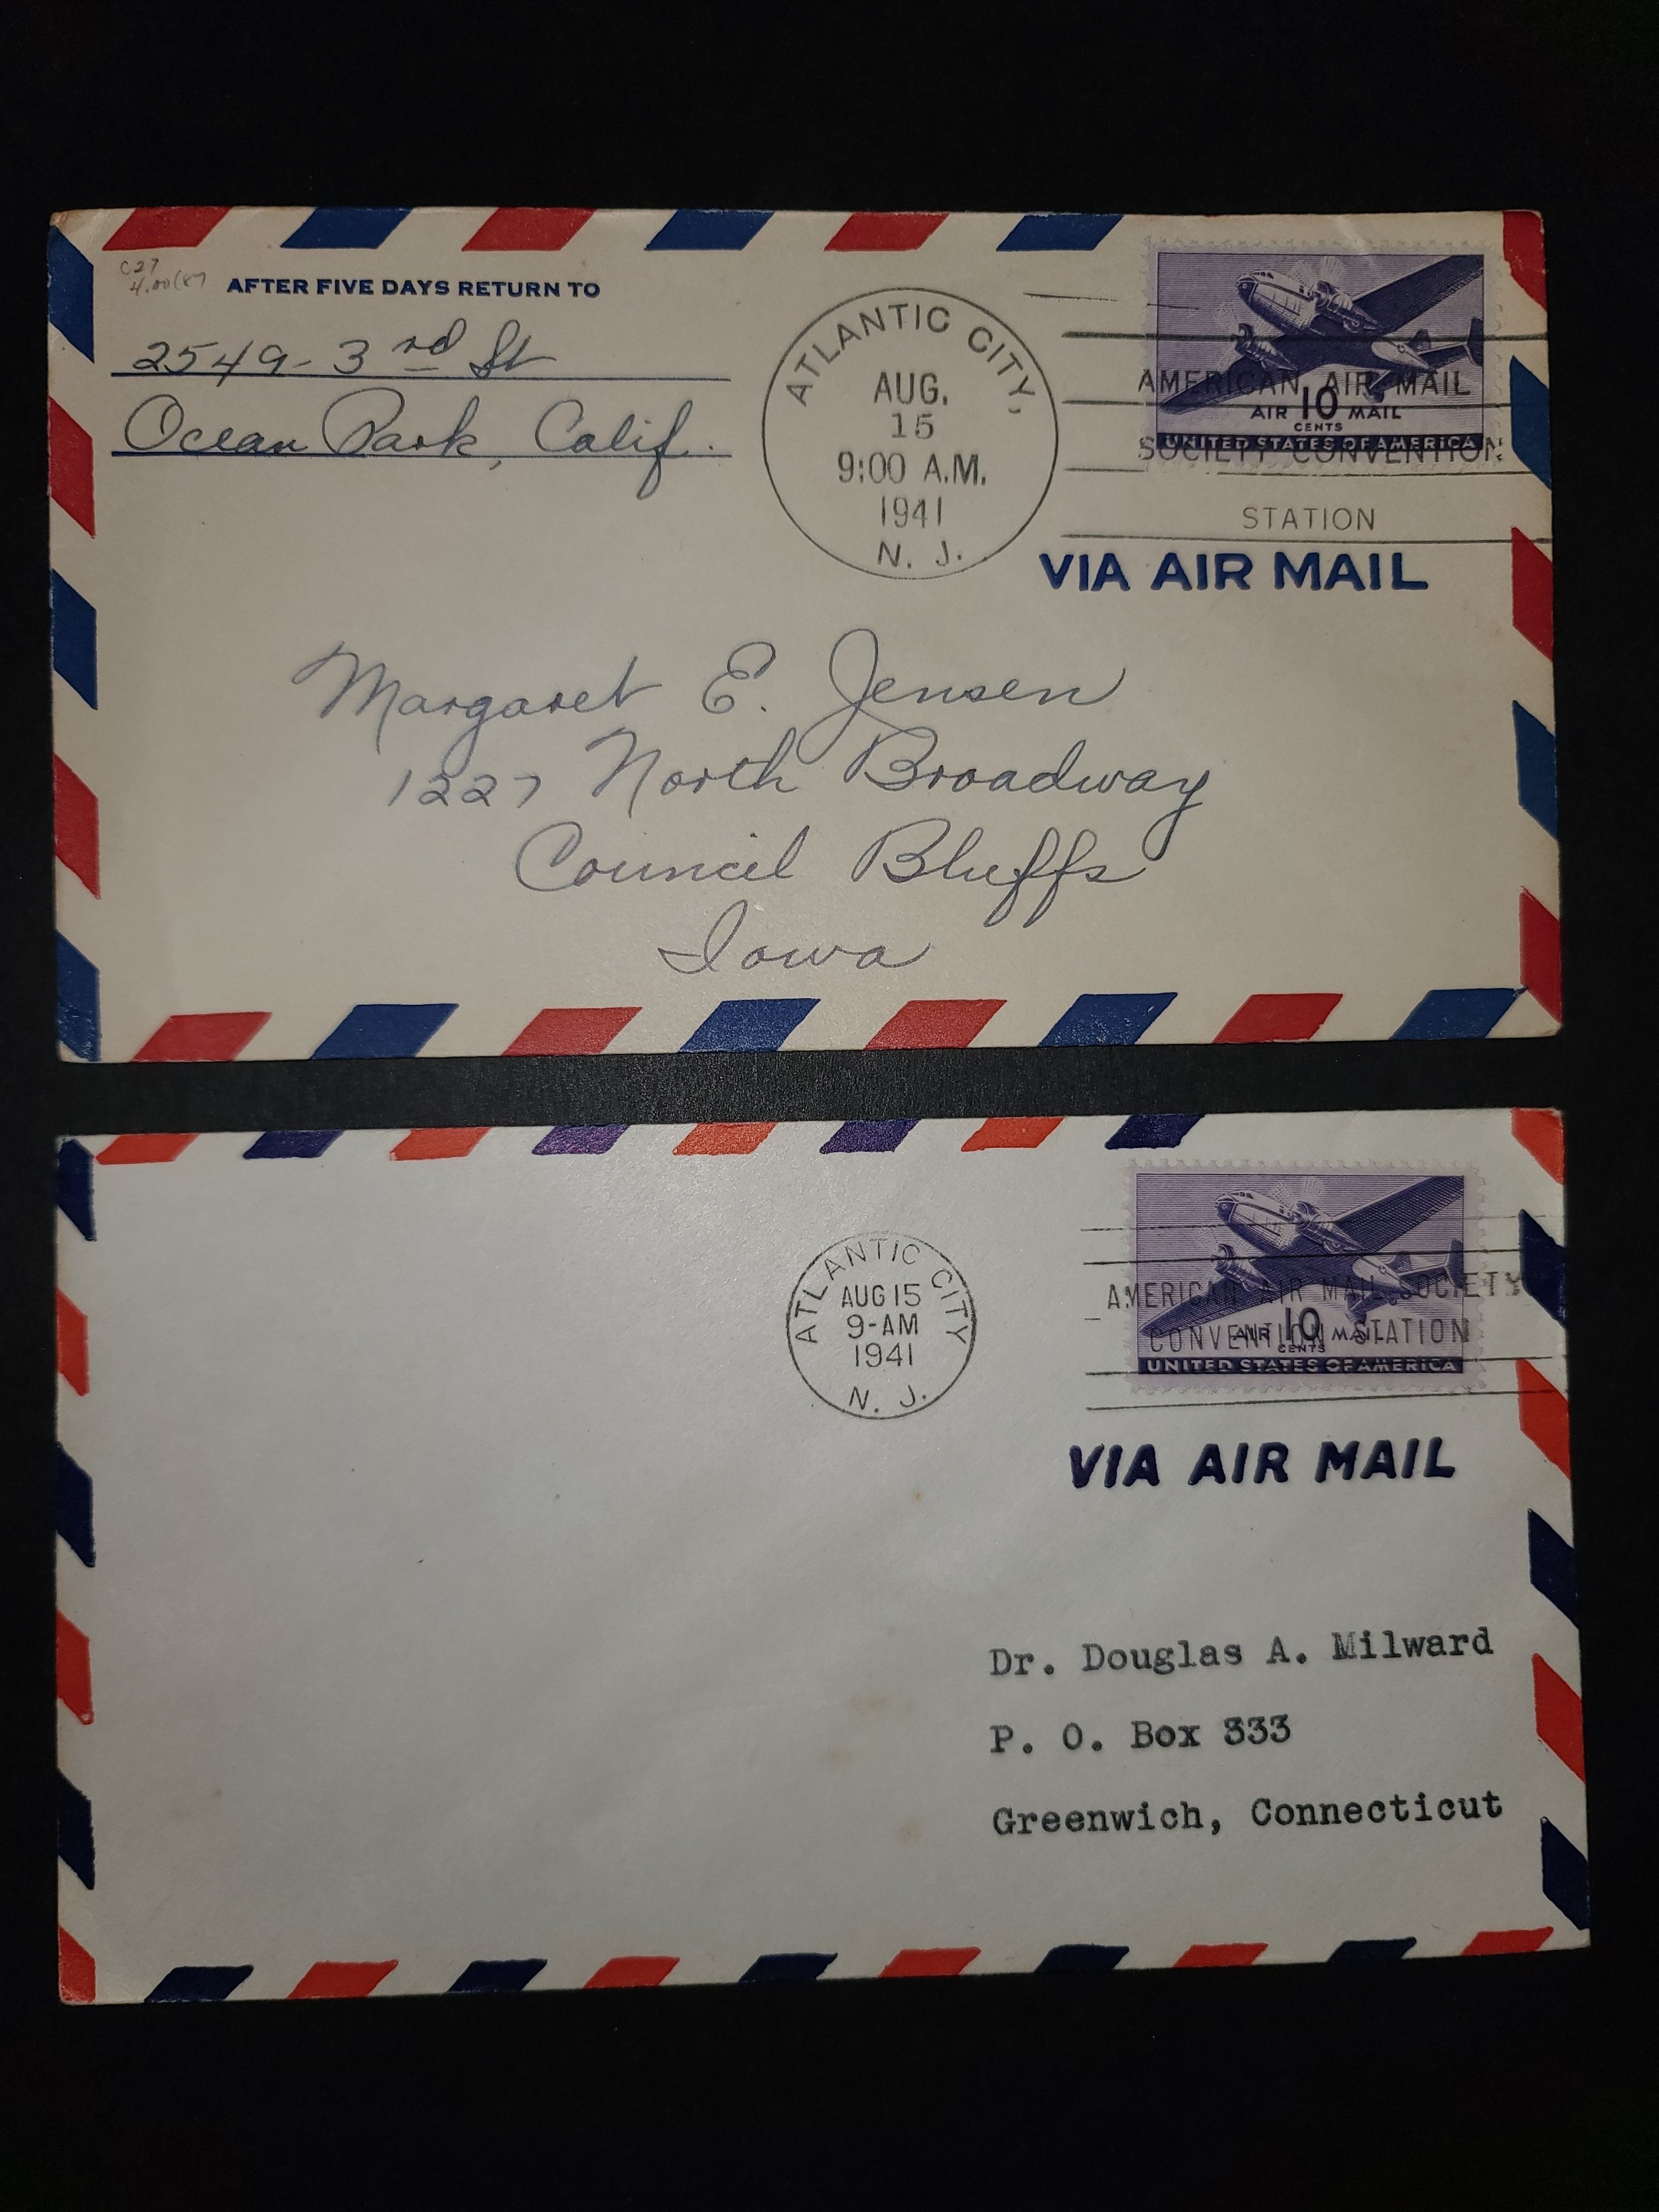 C27
4.00(87
AFTER FIVE DAYS RETURN TO
2549-3rd St
Ocean Park, Calif.
ATLANTIC CITY,
AUG.
15
9:00 A.M.
1941
N. J.
AMERICAN AIR MAIL
SOCIETY CONVENTION
STATION
AIR 10 MAIL
CENTS
UNITED STATES OF AMERICA
VIA AIR MAIL
Margaret E. Jensen
1227 North Broadway
Council Bluffs
Iowa
ATLANTIC CITY
AUG 15
9-AM
1941
N. J.
AMERICAN AIR MAIL SOCIETY
CONVENTION STATION
AIR 10 MAIL
CENTS
UNITED STATES OF AMERICA
VIA AIR MAIL
Dr. Douglas A. Milward
P. O. Box 333
Greenwich, Connecticut